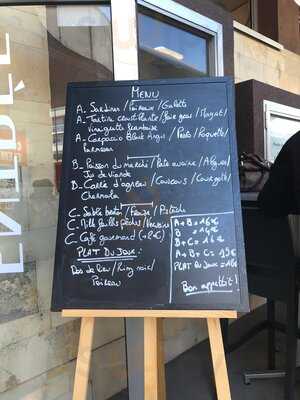 MENU
A. Sardines / Poireaux /
A. Tartine croustillante / foie gras / Magret /
Vinaigrette framboise
A. Carpaccio Black Angus / Pesto / Roquette /
Parmesan
B. Poisson du marché / Pate
Jus de viande
B. Carré d'agneau / Couscous / Courgette /
Chermoula
C. Sablé breton / Fraise / Pistache
C. Mille feuilles pêche / Verveine
C. Café gourmand (+2€)
PLAT DU JOUR:
Dos de lieu / Riz noir /
Poireau
A+B = 16€
B = 14€
B+C = 16€
A+B+C = 19€
PLAT DU JOUR = 10€
Bon appétit!